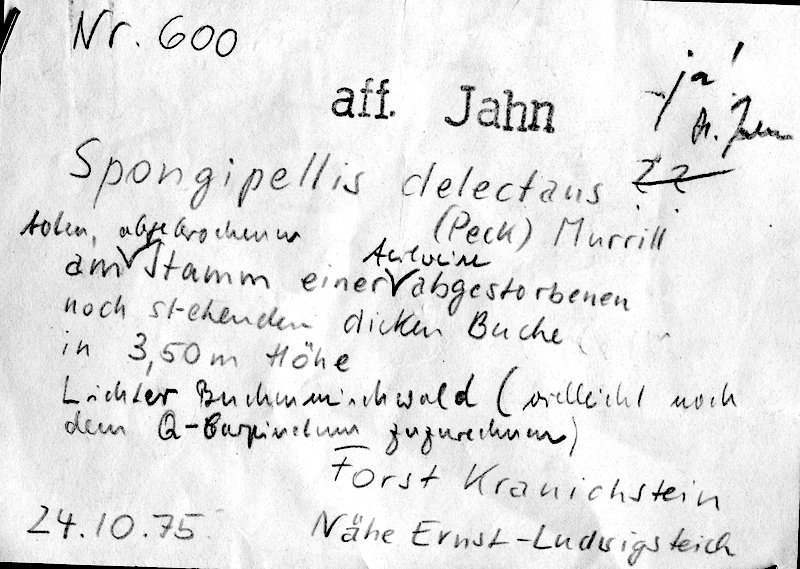 Nr. 600
ja!
aff. Jahn
Dr. Jahn
Spongipellis delectans ??
(Peck) Murrill
toten, abgebrochenen
am Stamm einer teilweise abgestorbenen
noch stehenden dicken Buche
in 3,50 m Höhe
Lichter Buchenmischwald (vielleicht noch
dem Q-Carpinetum zuzurechnen)
Forst Kranichstein
24.10.75 Nähe Ernst-Ludwigsteich